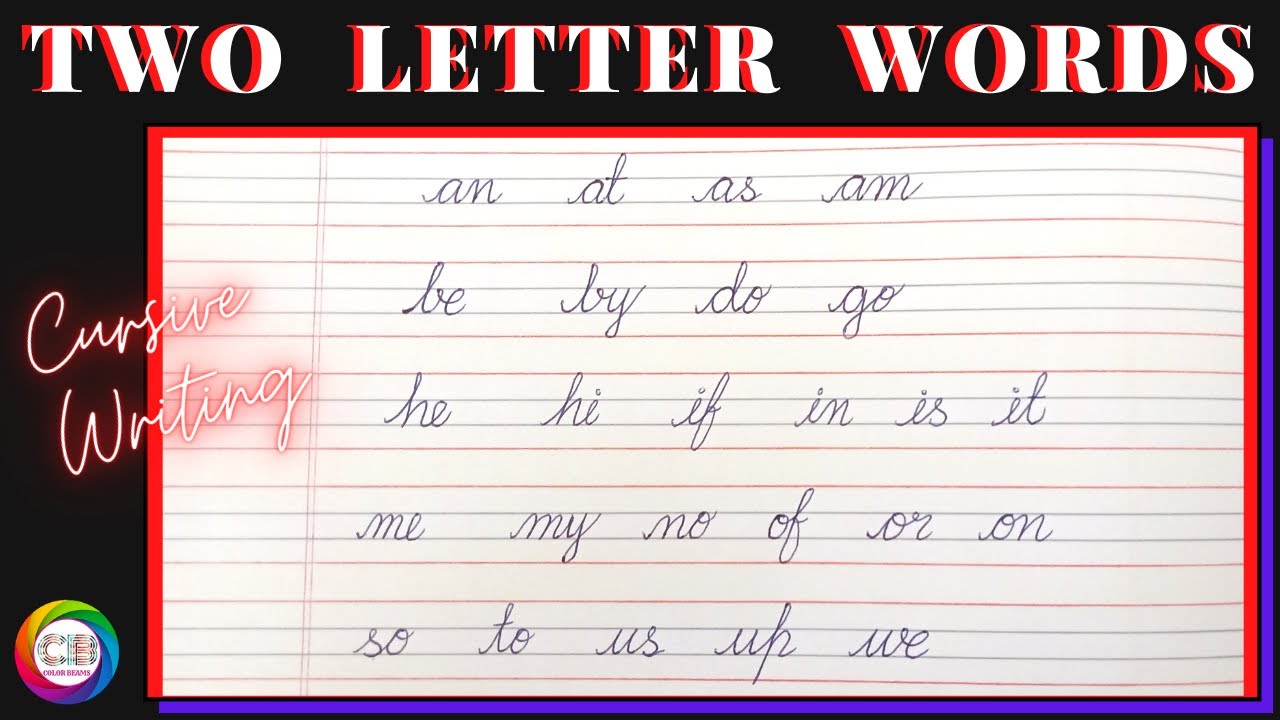 TWO LETTER WORDS
an at as am
be by do go
Cursive
he hi if in is it
Writing
me my no of or on
so to us up we
CB
COLOR BEAMS